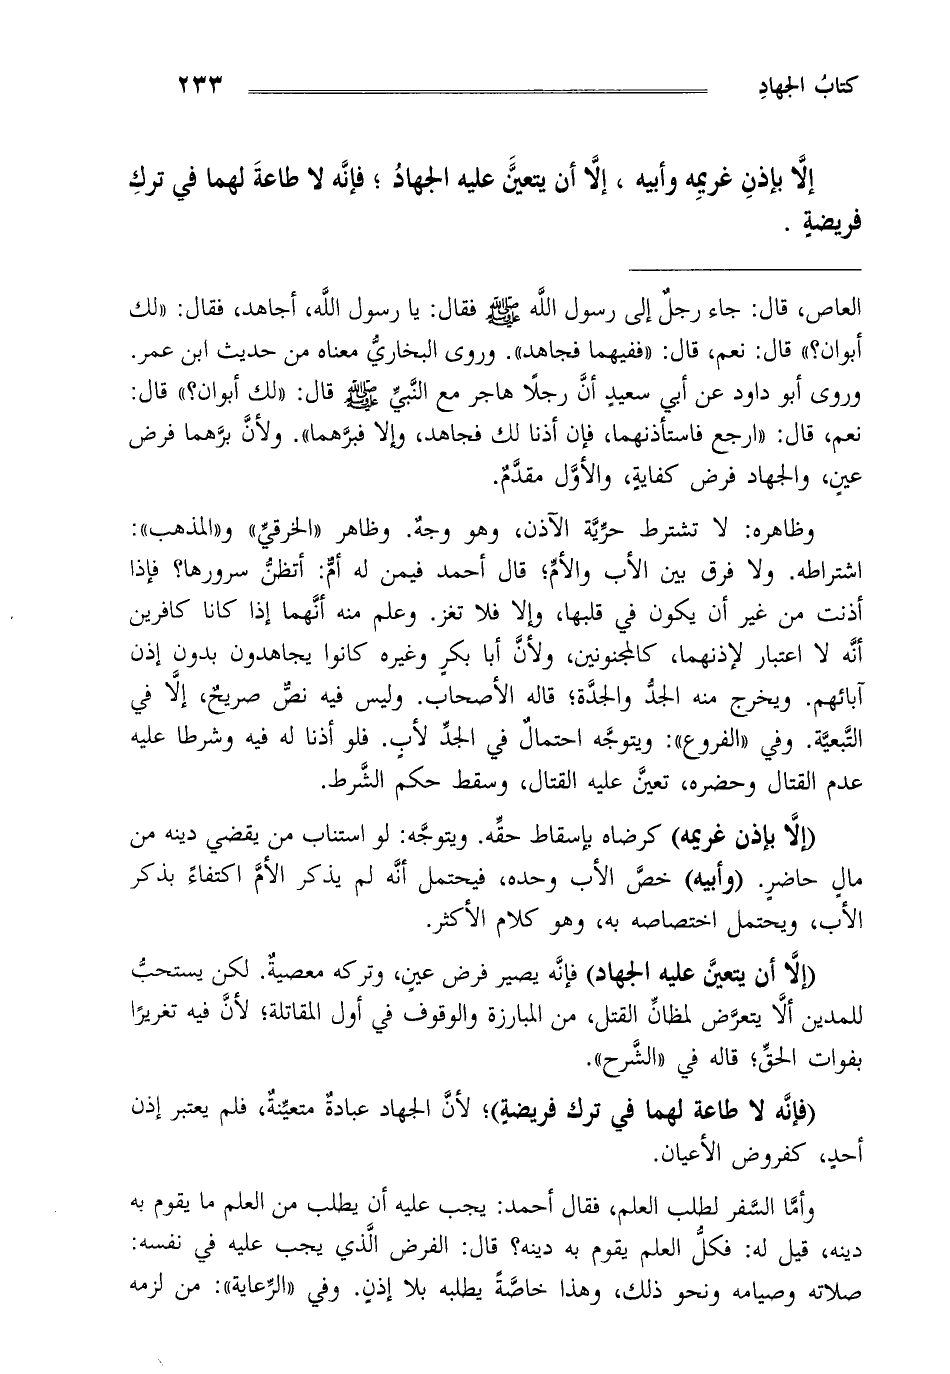 كتابُ الجهادِ ٢٣٣
إلَّا بإذنِ غريمِه وأبيه ، إلَّا أن يتعيَّنَ عليه الجهادُ ؛ فإنَّه لا طاعةَ لهما في تركِ
فريضةٍ .
العاص، قال: جاء رجلٌ إلى رسول اللَّه ﷺ فقال: يا رسول اللَّه، أجاهد، فقال: «لك
أبوان؟» قال: نعم، قال: «ففيهما فجاهد». وروى البخاريُّ معناه من حديث ابن عمر.
وروى أبو داود عن أبي سعيدٍ أنَّ رجلًا هاجر مع النَّبيِّ ﷺ قال: «لك أبوان؟» قال:
نعم، قال: «ارجع فاستأذنهما، فإن أذنا لك فجاهد، وإلا فبرَّهما». ولأنَّ برَّهما فرض
عينٍ، والجهاد فرض كفايةٍ، والأوَّل مقدَّمٌ.
وظاهره: لا تشترط حرِّيَّة الآذن، وهو وجهٌ. وظاهر «الخرقيِّ» و«المذهب»:
اشتراطه. ولا فرق بين الأب والأمِّ؛ قال أحمد فيمن له أمٌّ: أتظنُّ سرورها؟ فإذا
أذنت من غير أن يكون في قلبها، وإلا فلا تغز. وعلم منه أنَّهما إذا كانا كافرين
أنَّه لا اعتبار لإذنهما، كالمجنونين، ولأنَّ أبا بكرٍ وغيره كانوا يجاهدون بدون إذن
آبائهم. ويخرج منه الجدُّ والجدَّة؛ قاله الأصحاب. وليس فيه نصٌّ صريحٌ، إلَّا في
التَّبعيَّة. وفي «الفروع»: ويتوجَّه احتمالٌ في الجدِّ لأبٍ. فلو أذنا له فيه وشرطا عليه
عدم القتال وحضره، تعيَّن عليه القتال، وسقط حكم الشَّرط.
(إلَّا بإذن غريمه) كرضاه بإسقاط حقِّه. ويتوجَّه: لو استناب من يقضي دينه من
مالٍ حاضرٍ. (وأبيه) خصَّ الأب وحده، فيحتمل أنَّه لم يذكر الأمَّ اكتفاءً بذكر
الأب، ويحتمل اختصاصه به، وهو كلام الأكثر.
(إلَّا أن يتعيَّن عليه الجهاد) فإنَّه يصير فرض عينٍ، وتركه معصيةٌ. لكن يستحبُّ
للمدين ألَّا يتعرَّض لمظانِّ القتل، من المبارزة والوقوف في أول المقاتلة؛ لأنَّ فيه تغريرًا
بفوات الحقِّ؛ قاله في «الشَّرح».
(فإنَّه لا طاعة لهما في ترك فريضةٍ)؛ لأنَّ الجهاد عبادةٌ متعيِّنةٌ، فلم يعتبر إذن
أحدٍ، كفروض الأعيان.
وأمَّا السَّفر لطلب العلم، فقال أحمد: يجب عليه أن يطلب من العلم ما يقوم به
دينه، قيل له: فكلُّ العلم يقوم به دينه؟ قال: الفرض الَّذي يجب عليه في نفسه:
صلاته وصيامه ونحو ذلك، وهذا خاصَّةً يطلبه بلا إذنٍ. وفي «الرِّعاية»: من لزمه